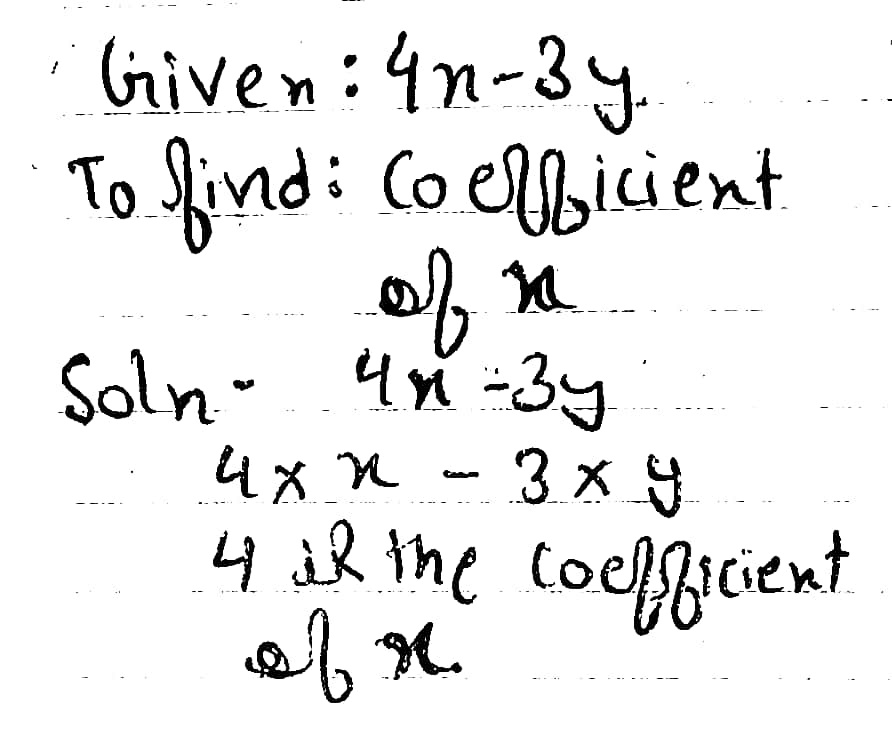 Given: 4x-3y.
To find: Coefficient
of x
Soln- 4x-3y
4 × x - 3 × y
4 is the coefficient
of x.